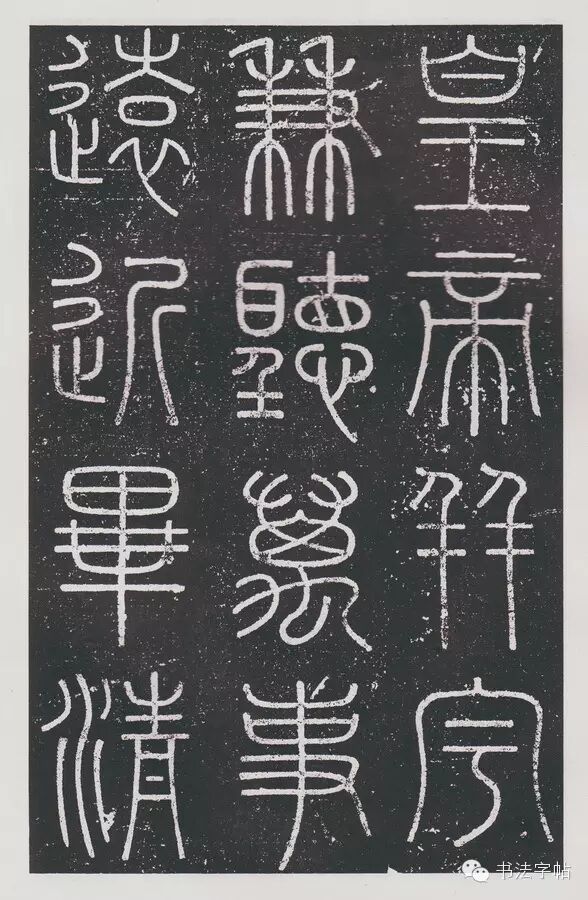 皇帝并宇
兼聽萬事
遠近畢清
书法字帖